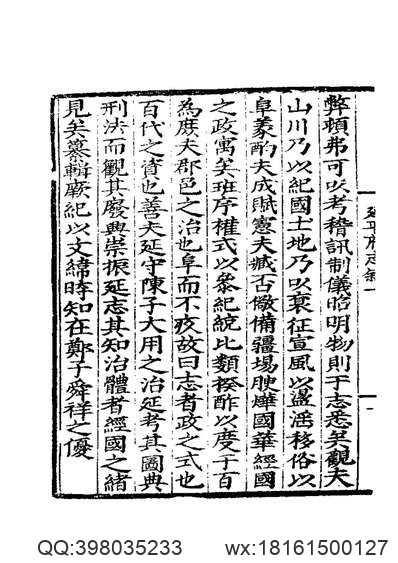 弊頓弗可以考稽訊制儀昭明物則于志悉矣觀夫
山川乃以紀國土地乃以裒征宣風以盪滛移俗以
阜羕酌夫成賦憲夫臧否儆備疆場腴燁國華經國
之政寓矣班序權式以叅紀統比類揆酢以度于百
為庶夫郡邑之治也阜而不疚故曰志者政之式也
百代之資也善夫延守陳子大用之治延考其圖典
刑法而觀其廢興崇振延志其知治體者經國之緒
見矣纂輯厥紀以文緯時知在鄭子舜祥之優
延平府志叙
一
QQ:398035233
wx:18161500127